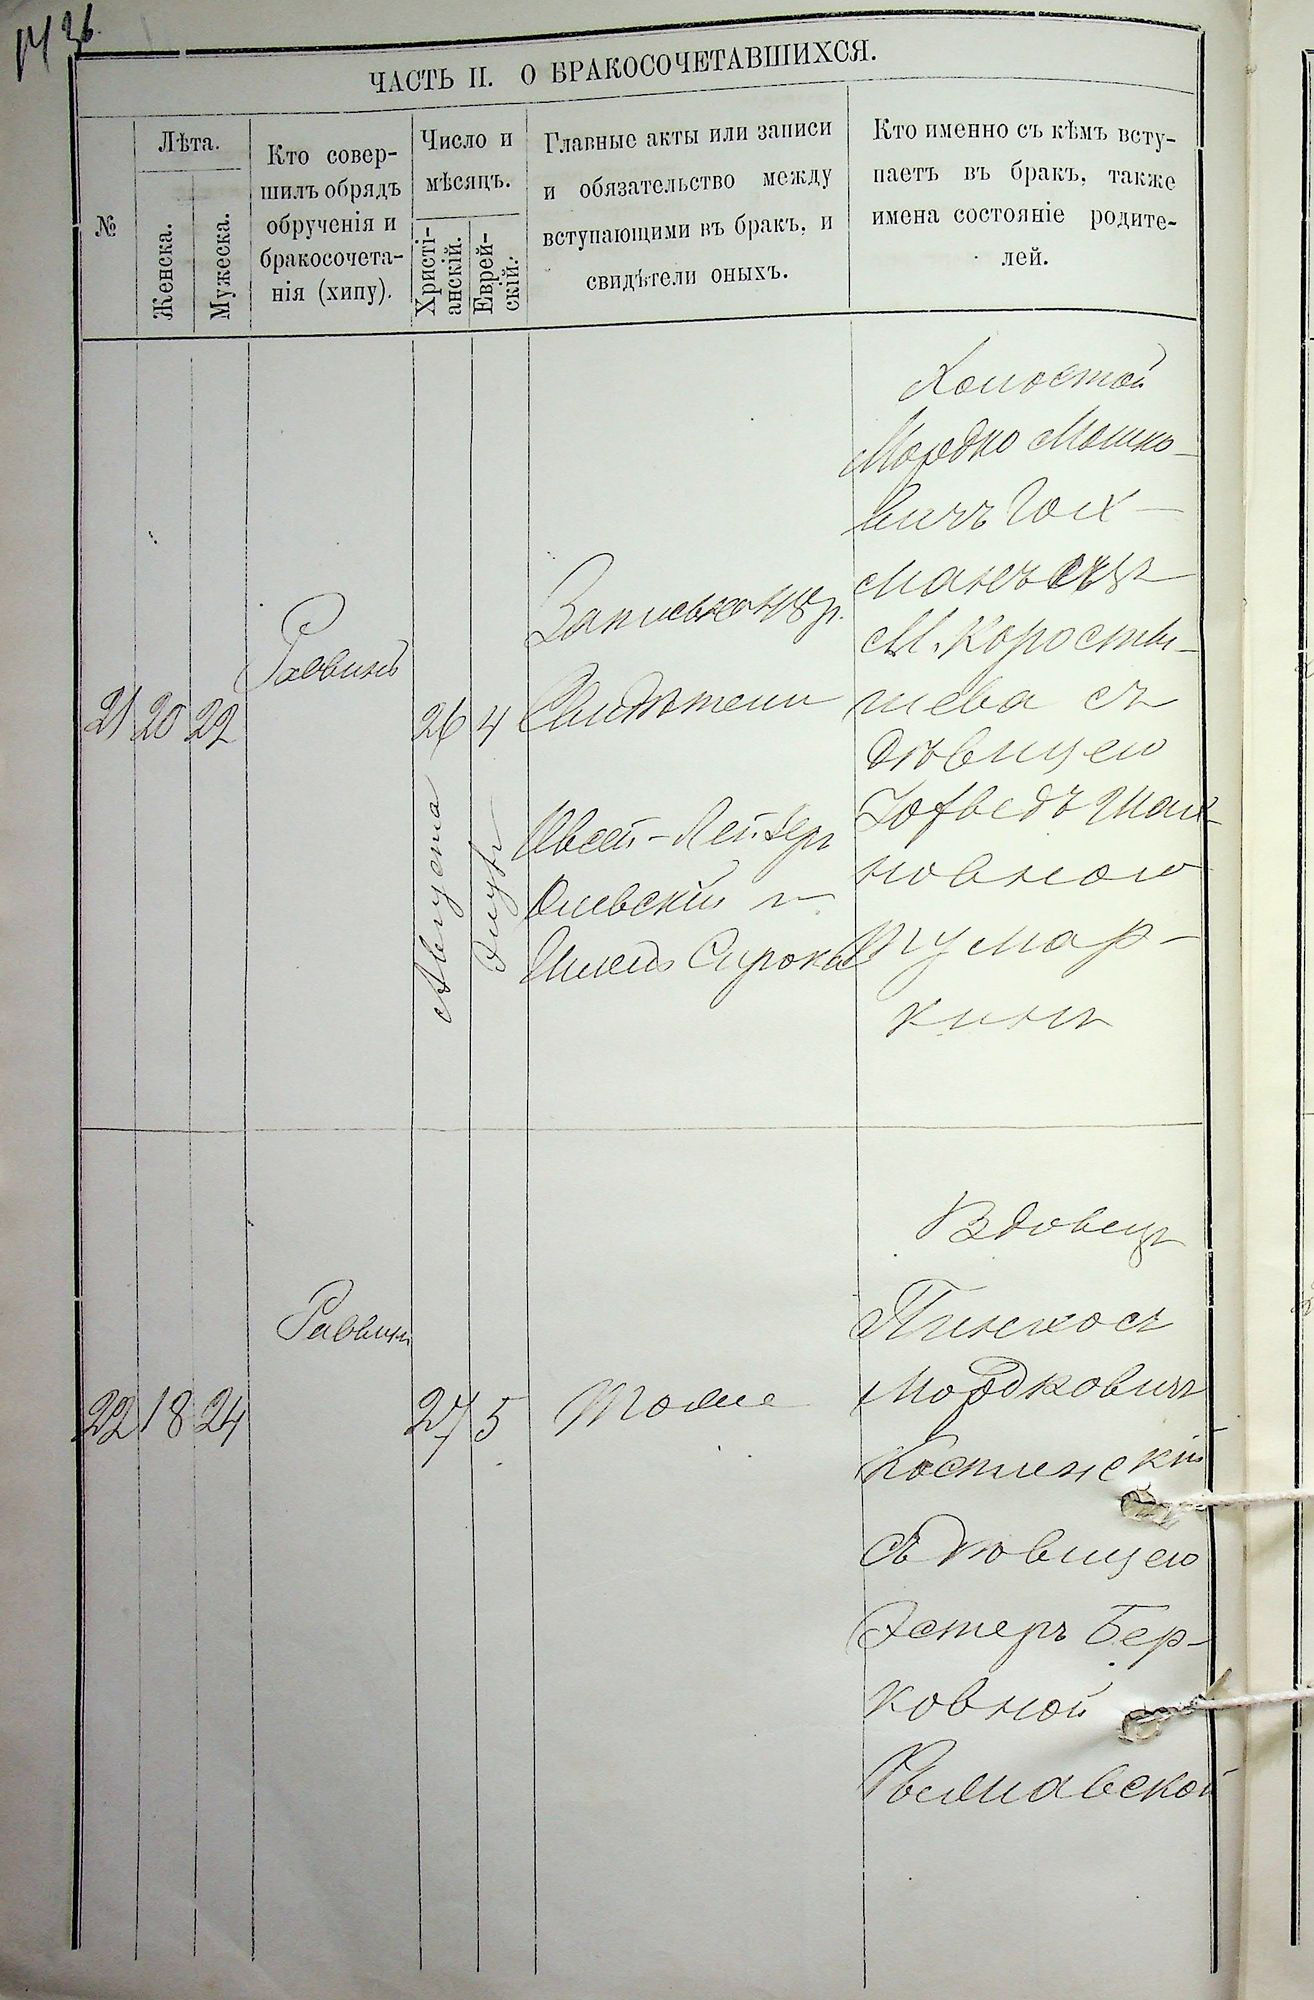 ЧАСТЬ II. О БРАКОСОЧЕТАВШИХСЯ.
№
Лѣта.
Женска.
Мужеска.
Кто совер-
шилъ обрядъ
обрученія и
бракосочета-
нія (хипу).
Число и
мѣсяцъ.
Христі-
анскій.
Еврей-
скій.
Главные акты или записи
и обязательство между
вступающими въ бракъ, и
свидѣтели оныхъ.
Кто именно съ кѣмъ всту-
паетъ въ бракъ, также
имена состояніе родите-
лей.
21
20
22
Раввинъ
26
Августа
4
Элулъ
Запись на 48 р.
Свидѣтели
Овсей-Лейзеръ
Олевскій и
Холостой
Мордко Мошко-
вичъ Гох-
манъ
М. Коросты-
шева съ
дѣвицею
новною
22
18
24
Раввинъ
27
5
Тоже
Вдовецъ
Пинхосъ
Мордковичъ
съ дѣвицею
Эстеръ Бер-
ковной